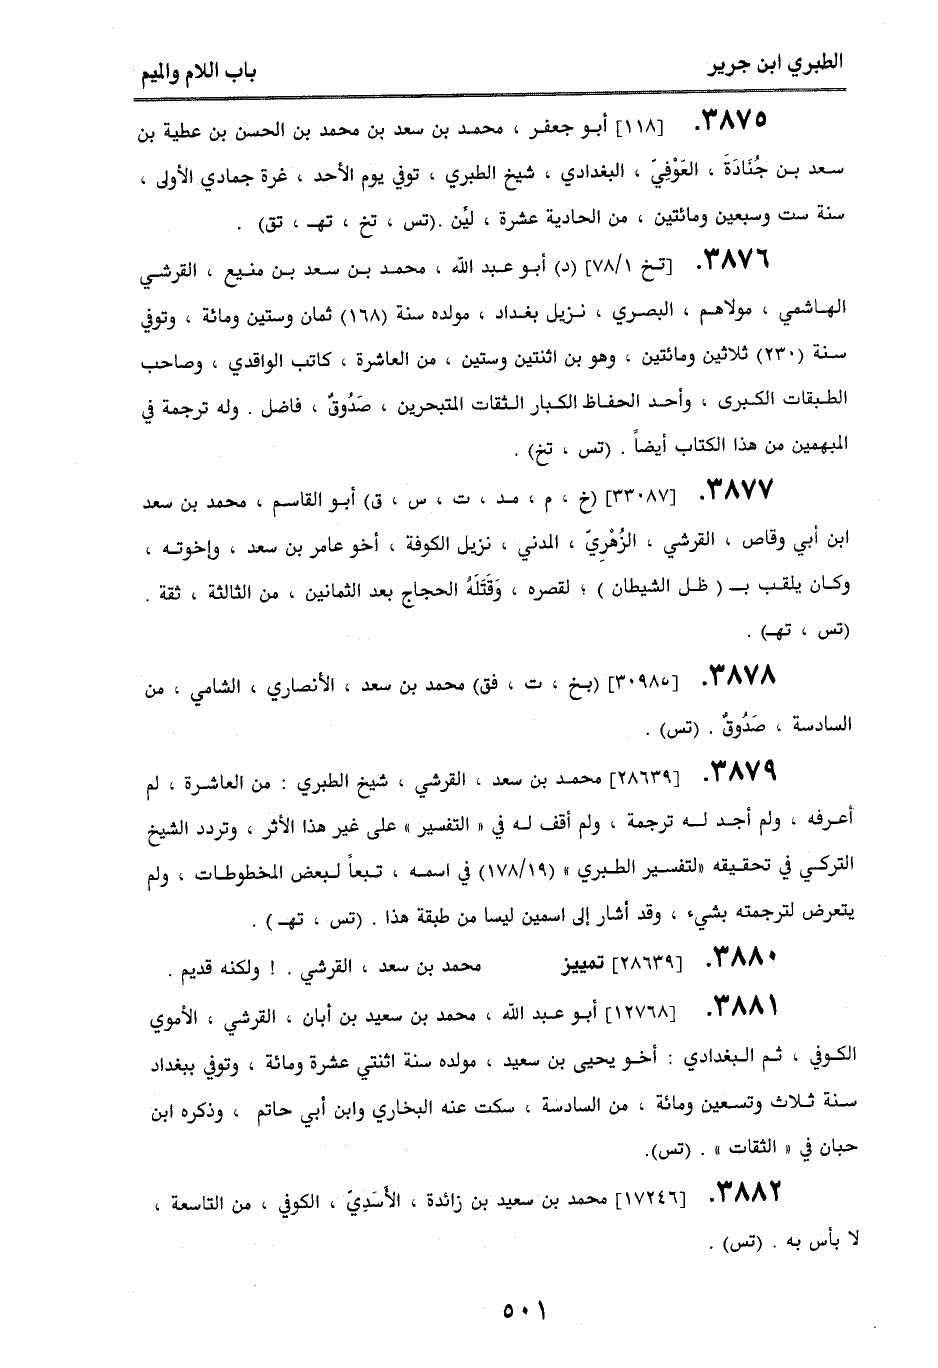 الطبري ابن جرير
باب اللام والميم
٣٨٧٥. [١١٨] أبو جعفر ، محمد بن سعد بن محمد بن الحسن بن عطية بن
سعد بن جُنَادَةَ ، العَوْفِيّ ، البغدادي ، شيخ الطبري ، توفي يوم الأحد ، غرة جمادي الأولى ،
سنة ست وسبعين ومائتين ، من الحادية عشرة ، ليِّن .(تس ، تخ ، تهـ ، تق) .
٣٨٧٦. [تخ ٧٨/١] (د) أبو عبد الله ، محمد بن سعد بن منيع ، القرشي
الهاشمي ، مولاهم ، البصري ، نزيل بغداد ، مولده سنة (١٦٨) ثمان وستين ومائة ، وتوفي
سنة (٢٣٠) ثلاثين ومائتين ، وهو بن اثنتين وستين ، من العاشرة ، كاتب الواقدي ، وصاحب
الطبقات الكبرى ، وأحد الحفاظ الكبار الثقات المتبحرين ، صَدُوقٌ ، فاضل . وله ترجمة في
المبهمين من هذا الكتاب أيضاً . (تس ، تخ) .
٣٨٧٧. [٣٣٠٨٧] (خ ، م ، مد ، ت ، س ، ق) أبو القاسم ، محمد بن سعد
ابن أبي وقاص ، القرشي ، الزُهْرِيّ ، المدني ، نزيل الكوفة ، أخو عامر بن سعد ، وإخوته ،
وكان يلقب بـ ( ظل الشيطان ) ؛ لقصره ، وَقَتَلَهُ الحجاج بعد الثمانين ، من الثالثة ، ثقة .
(تس ، تهـ) .
٣٨٧٨. [٣٠٩٨٥] (بخ ، ت ، فق) محمد بن سعد ، الأنصاري ، الشامي ، من
السادسة ، صَدُوقٌ . (تس) .
٣٨٧٩. [٢٨٦٣٩] محمد بن سعد ، القرشي ، شيخ الطبري : من العاشرة ، لم
أعرفه ، ولم أجد له ترجمة ، ولم أقف له في « التفسير » على غير هذا الأثر ، وتردد الشيخ
التركي في تحقيقه «لتفسير الطبري» (١٧٨/١٩) في اسمه ، تبعاً لبعض المخطوطات ، ولم
يتعرض لترجمته بشيء ، وقد أشار إلى اسمين ليسا من طبقة هذا . (تس ، تهـ) .
٣٨٨٠. [٢٨٦٣٩] تمييز محمد بن سعد ، القرشي . ! ولكنه قديم .
٣٨٨١. [١٢٧٦٨] أبو عبد الله ، محمد بن سعيد بن أبان ، القرشي ، الأموي
الكوفي ، ثم البغدادي : أخو يحيى بن سعيد ، مولده سنة اثنتي عشرة ومائة ، وتوفي ببغداد
سنة ثلاث وتسعين ومائة ، من السادسة ، سكت عنه البخاري وابن أبي حاتم ، وذكره ابن
حبان في « الثقات » . (تس).
٣٨٨٢. [١٧٢٤٦] محمد بن سعيد بن زائدة ، الأَسَدِيّ ، الكوفي ، من التاسعة ،
لا بأس به . (تس) .
٥٠١